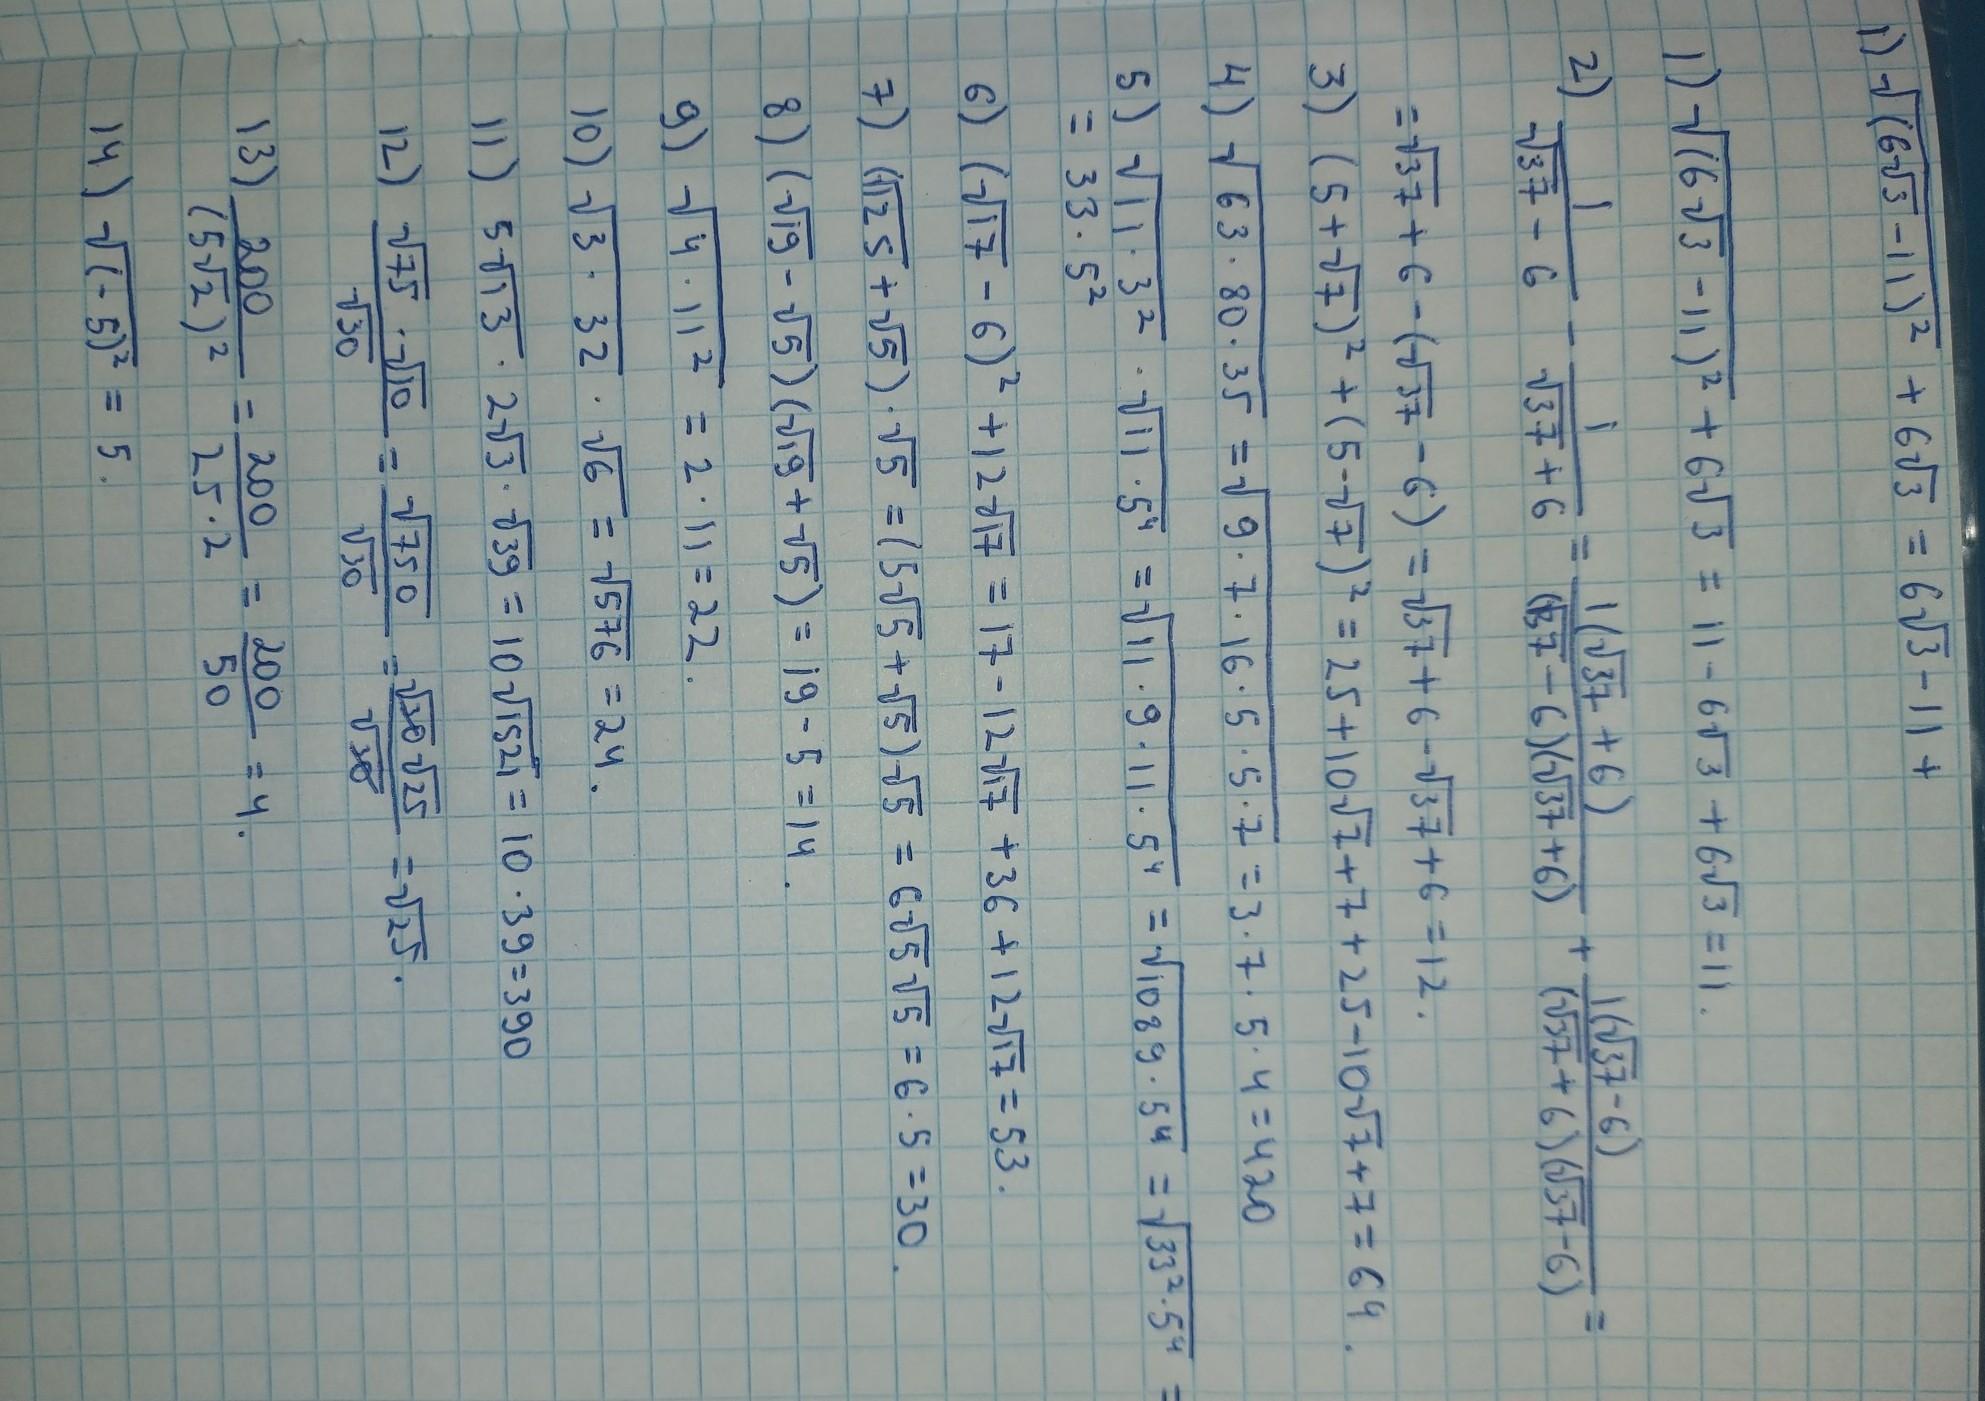 1) √(6√3-11)² + 6√3 = 6√3-11+
1) √(6√3-11)² + 6√3 = 11-6√3+6√3=11.
2) 1/(√37-6) - 1/(√37+6) = 1(√37+6)/((√37-6)(√37+6)) + 1(√37-6)/((√37+6)(√37-6)) =
=√37+6-(√37-6)=√37+6-√37+6=12.
3) (5+√7)²+(5-√7)²=25+10√7+7+25-10√7+7=64.
4) √63·80·35=√9·7·16·5·5·7=3·7·5·4=420
5) √11·3²·√11·5⁴=√11·9·11·5⁴=√1089·5⁴=√33²·5⁴=
=33·5²
6) (√17-6)²+12√17=17-12√17+36+12√17=53.
7) (√125+√5)·√5=(5√5+√5)√5=6√5√5=6·5=30.
8) (√19-√5)(√19+√5)=19-5=14.
9) √4·11²=2·11=22.
10) √3·32·√6=√576=24.
11) 5√13·2√3·√39=10√1521=10·39=390
12) √75·√10/√30=√750/√30=√30√25/√30=√25.
13) 200/(5√2)²=200/25·2=200/50=4.
14) √(-5)²=5.